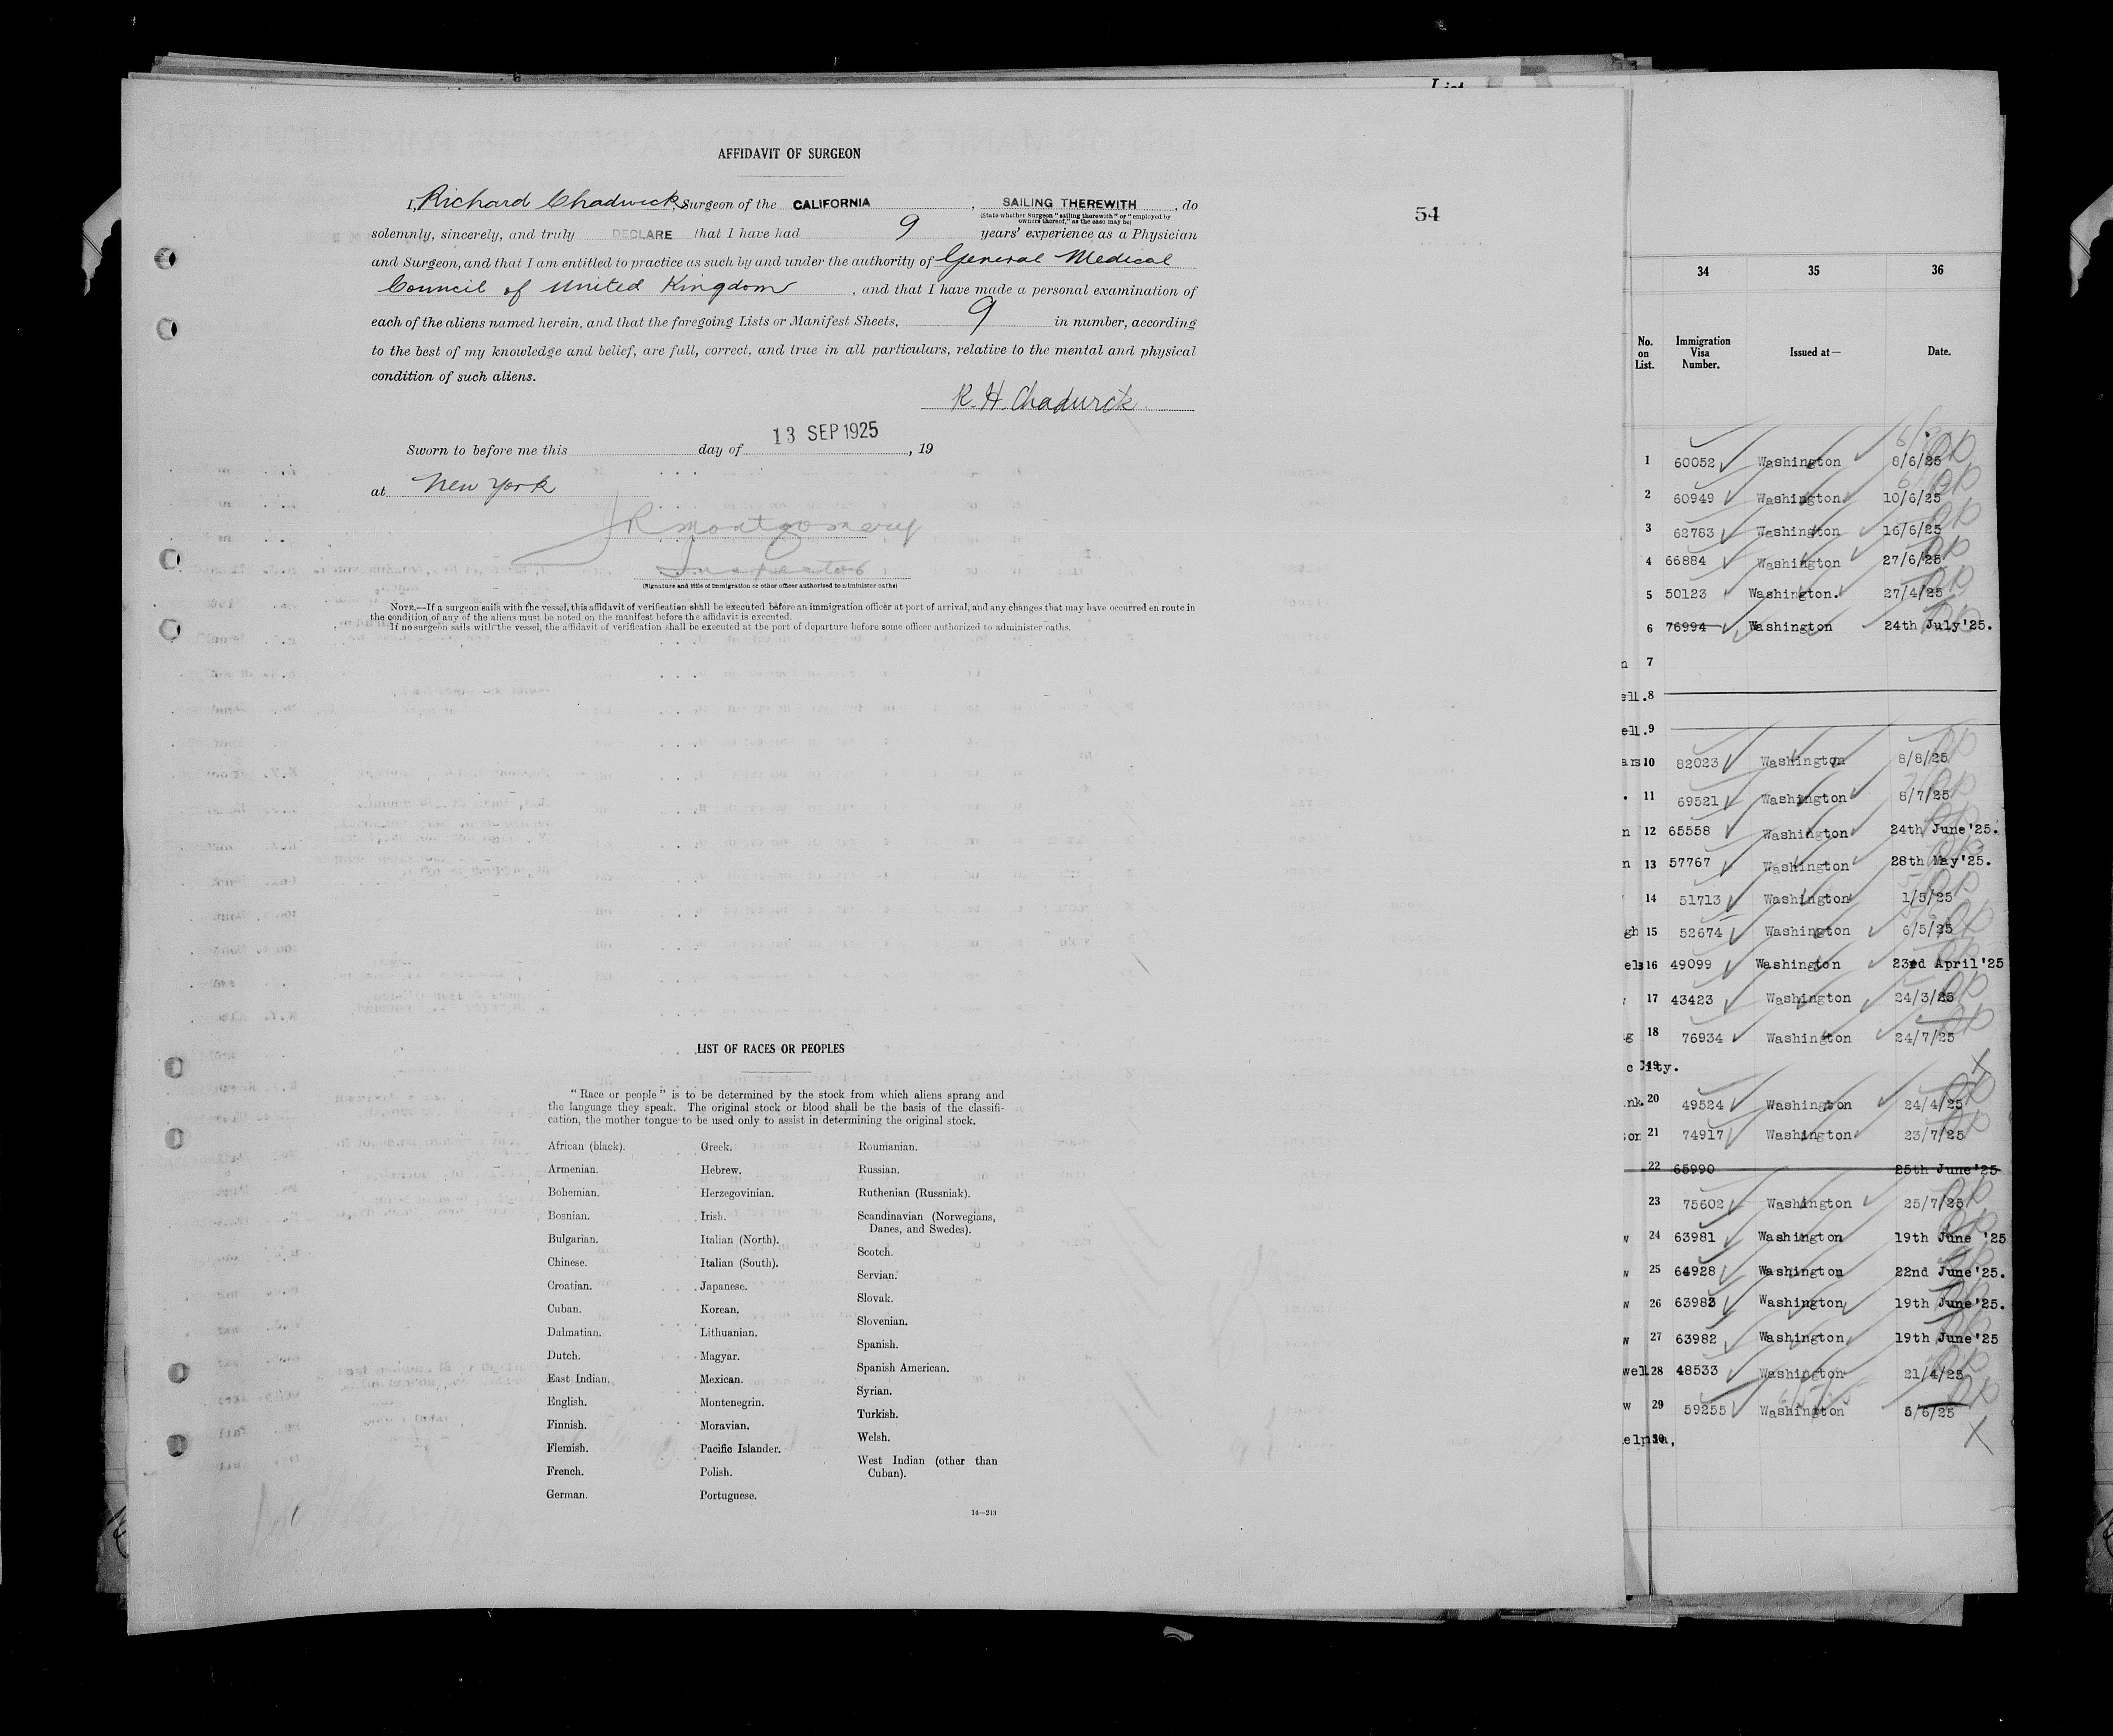 List
AFFIDAVIT OF SURGEON
54
I, Richard Chadwick, Surgeon of the CALIFORNIA, SAILING THEREWITH, do
(State whether Surgeon "sailing therewith" or "employed by
owners thereof," as the case may be)
solemnly, sincerely, and truly DECLARE that I have had 9 years' experience as a Physician
and Surgeon, and that I am entitled to practice as such by and under the authority of General Medical
Council of United Kingdom, and that I have made a personal examination of
each of the aliens named herein, and that the foregoing Lists or Manifest Sheets, 9 in number, according
to the best of my knowledge and belief, are full, correct, and true in all particulars, relative to the mental and physical
condition of such aliens.
R. H. Chadwick
Sworn to before me this day of 13 SEP 1925, 19
at New York
JR Montgomery
Inspector
(Signature and title of immigration or other officer authorized to administer oaths)
NOTE.—If a surgeon sails with the vessel, this affidavit of verification shall be executed before an immigration officer at port of arrival, and any changes that may have occurred en route in
the condition of any of the aliens must be noted on the manifest before the affidavit is executed.
If no surgeon sails with the vessel, the affidavit of verification shall be executed at the port of departure before some officer authorized to administer oaths.
LIST OF RACES OR PEOPLES
"Race or people" is to be determined by the stock from which aliens sprang and
the language they speak. The original stock or blood shall be the basis of the classifi-
cation, the mother tongue to be used only to assist in determining the original stock.
African (black).
Armenian.
Bohemian.
Bosnian.
Bulgarian.
Chinese.
Croatian.
Cuban.
Dalmatian.
Dutch.
East Indian.
English.
Finnish.
Flemish.
French.
German.
Greek.
Hebrew.
Herzegovinian.
Irish.
Italian (North).
Italian (South).
Japanese.
Korean.
Lithuanian.
Magyar.
Mexican.
Montenegrin.
Moravian.
Pacific Islander.
Polish.
Portuguese.
Roumanian.
Russian.
Ruthenian (Russniak).
Scandinavian (Norwegians,
Danes, and Swedes).
Scotch.
Servian.
Slovak.
Slovenian.
Spanish.
Spanish American.
Syrian.
Turkish.
Welsh.
West Indian (other than
Cuban).
14—213
34 35 36
No. on List. Immigration Visa Number. Issued at— Date.
1 60052 Washington 8/6/25
2 60949 Washington 10/6/25
3 62783 Washington 16/6/25
4 66884 Washington 27/6/25
5 50123 Washington. 27/4/25
6 76994 Washington 24th July'25.
n 7
ell. 8
ell. 9
ars 10 82023 Washington 8/8/25
. 11 69521 Washington 8/7/25
n 12 65558 Washington 24th June'25.
n 13 57767 Washington 28th May'25.
14 51713 Washington 1/5/25
gh 15 52674 Washington 6/5/25
els 16 49099 Washington 23rd April'25
17 43423 Washington 24/3/25
g 18 76934 Washington 24/7/25
c City. 19
nk. 20 49524 Washington 24/4/25
son 21 74917 Washington 23/7/25
22 65990 25th June'25
23 75602 Washington 25/7/25
w 24 63981 Washington 19th June '25
w 25 64928 Washington 22nd June'25.
w 26 63983 Washington 19th June'25.
w 27 63982 Washington 19th June'25
well 28 48533 Washington 21/4/25
w 29 59255 Washington 5/6/25
elphia, 30